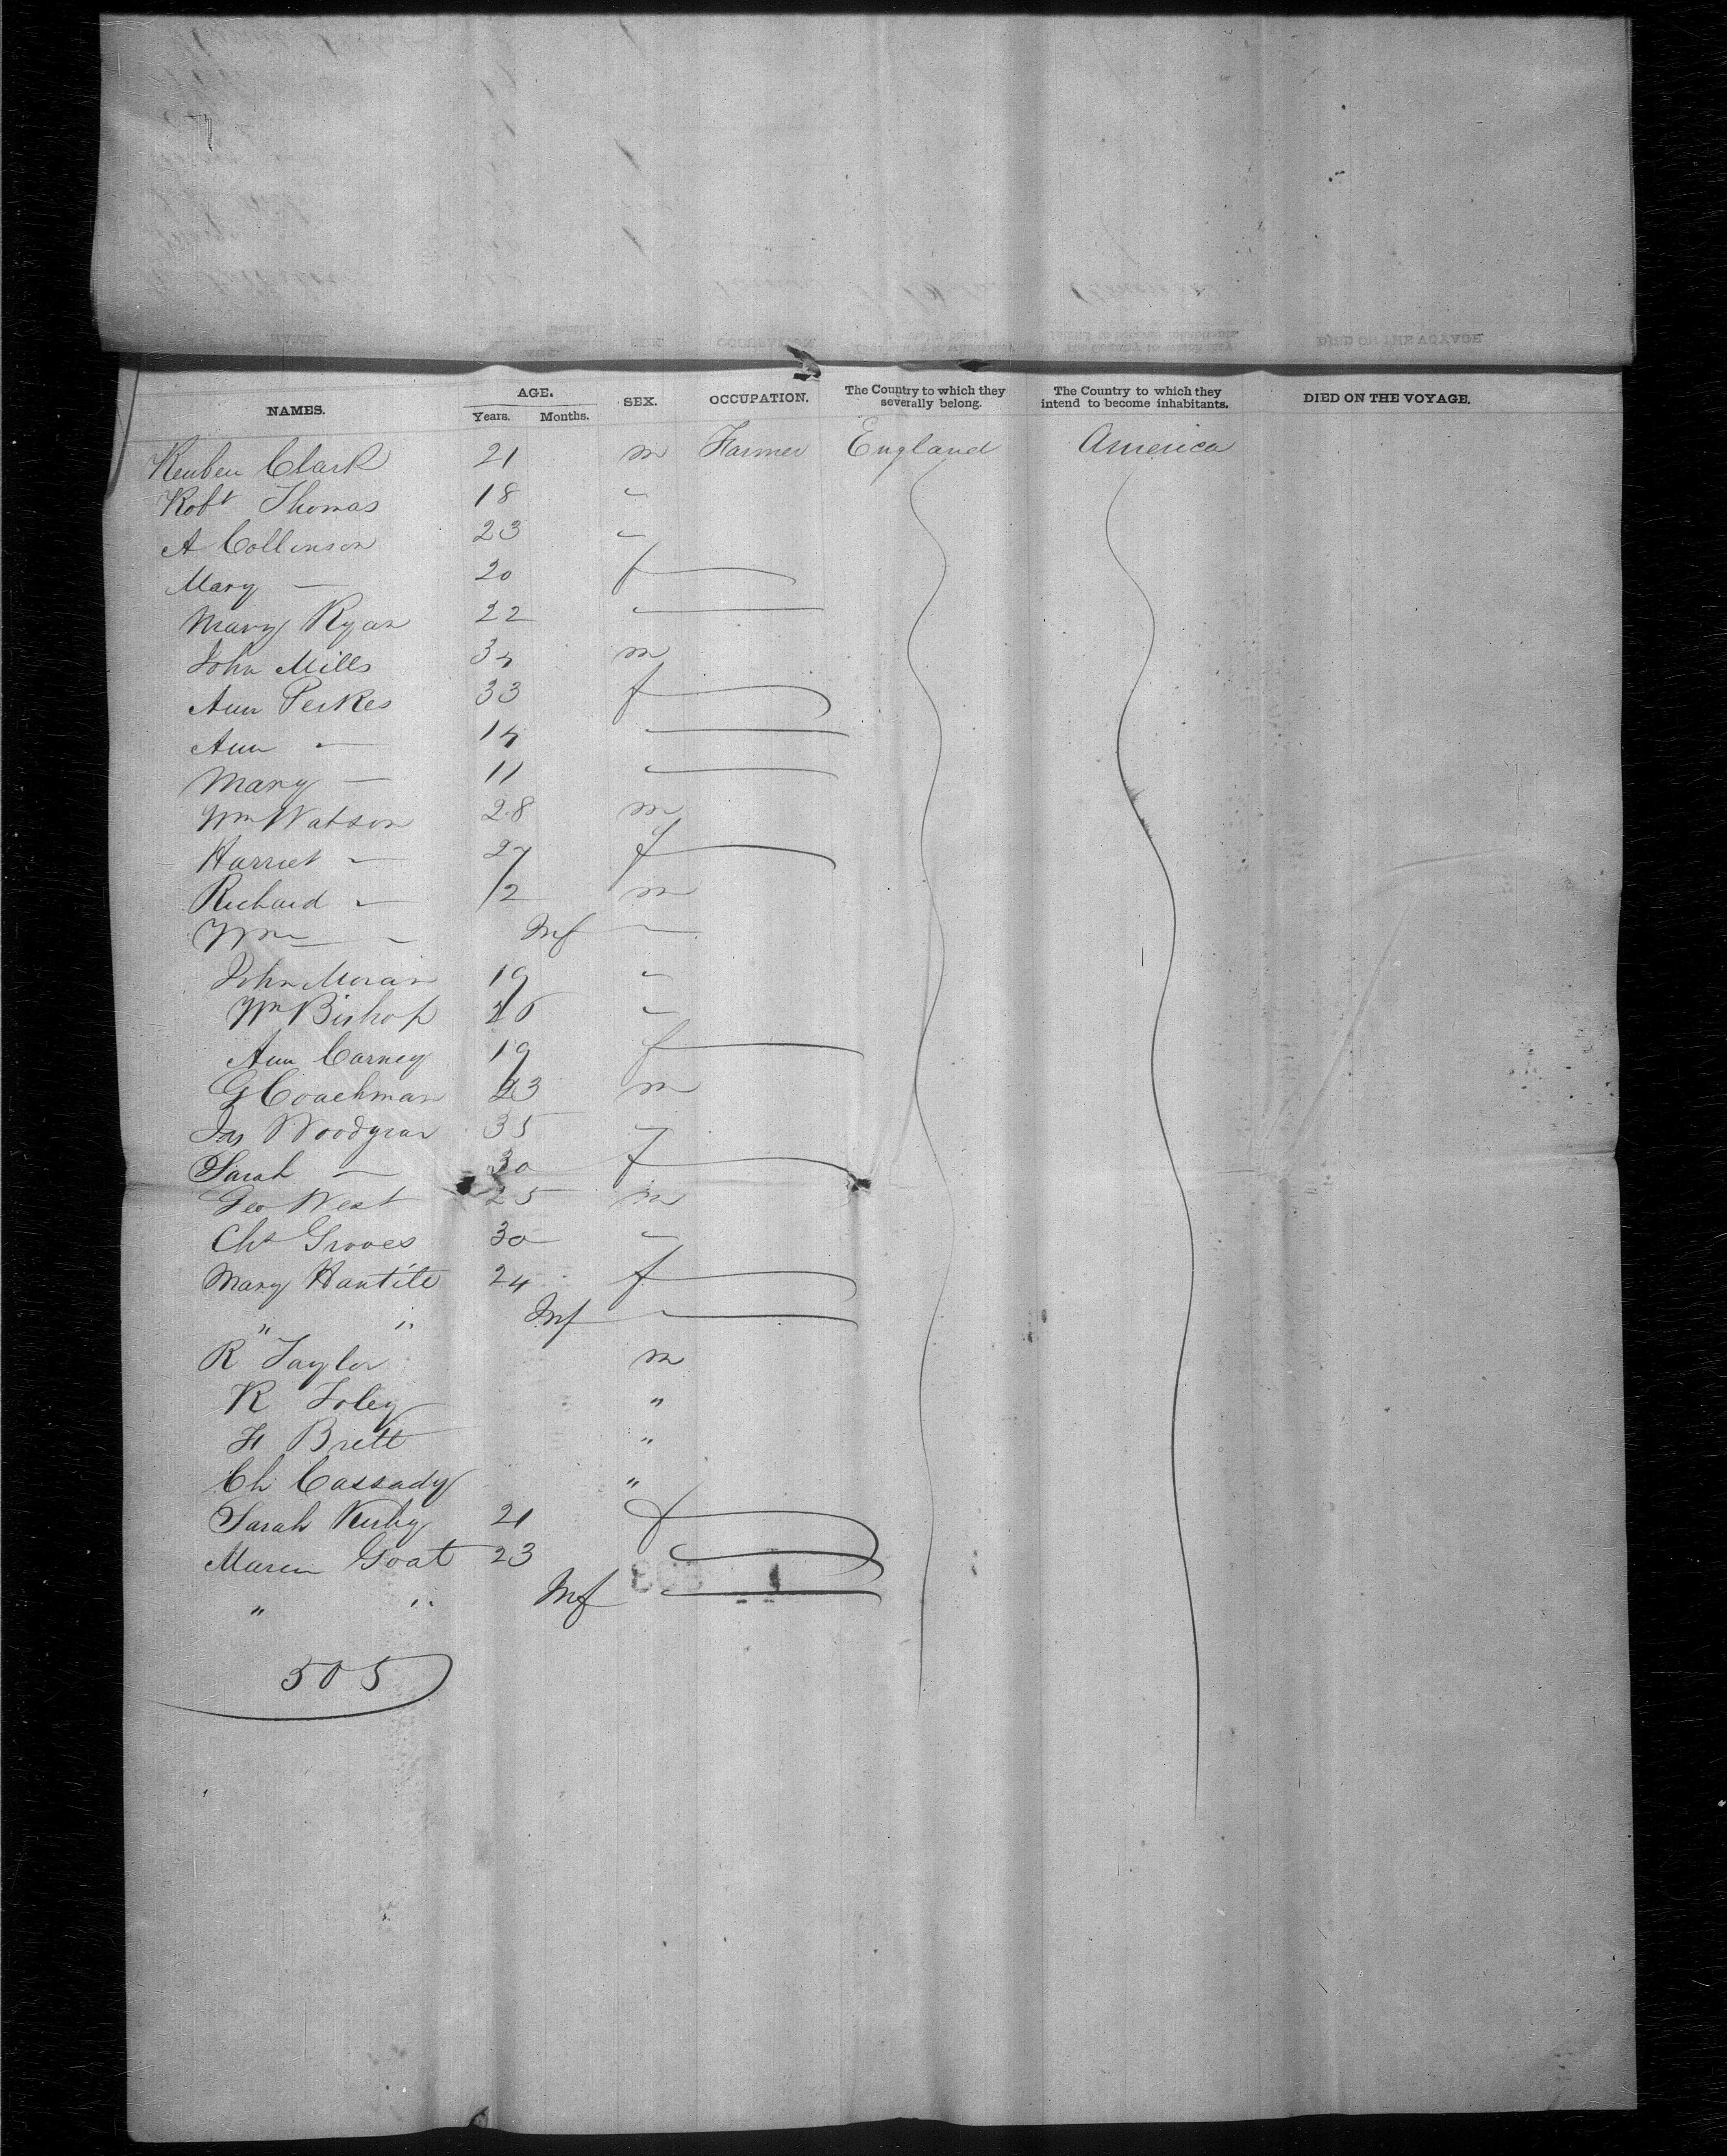 NAMES. AGE. Years. Months. SEX. OCCUPATION. The Country to which they severally belong. The Country to which they intend to become inhabitants. DIED ON THE VOYAGE.
Reuben Clark 21 m Farmer England America
Robt Thomas 18 "
A Collinson 23 "
Mary — 20 f
Mary Ryan 22
John Mills 34 m
Ann Perkes 33 f
Ann — 14
Mary — 11
Wm Watson 28 m
Harriet — 27 f
Richard — 1/2 m
Wm — Inf
John Moran 19 "
Wm Bishop 26 "
Ann Carney 19 f
G Coachman 23 m
Jas Woodgear 35 "
Sarah — 30 f
Geo West 25 m
Chs Groves 30 "
Mary Hantile 24 f
" " Inf
R Taylor m
R Foley "
H Brett "
Ch Cassady "
Sarah Kirby 21 f
Goat 23
" " Inf
505